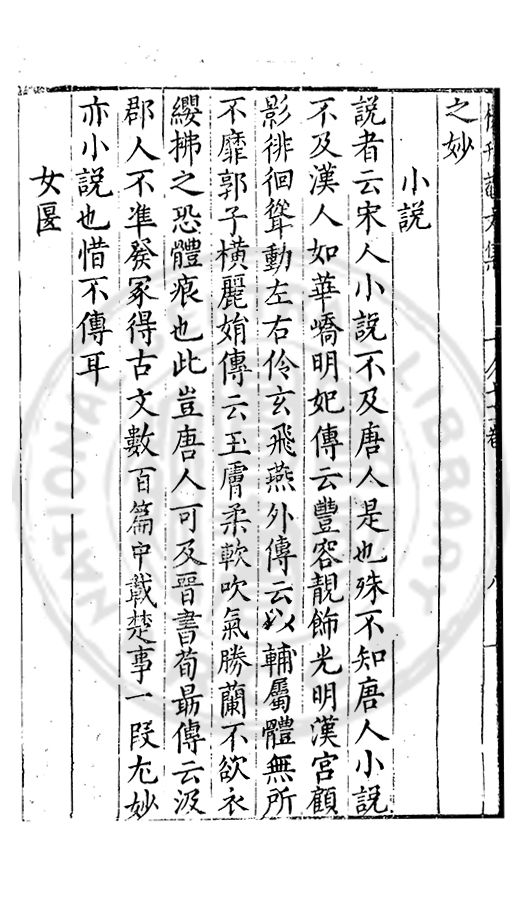 之妙
小説
説者云宋人小説不及唐人是也殊不知唐人小説
不及漢人如華嶠明妃傳云豐容靚飾光明漢宮顧
影徘徊聳動左右伶玄飛燕外傳云以輔屬體無所
不靡郭子橫麗娟傳云玉膚柔軟吹氣勝蘭不欲衣
纓拂之恐體痕也此豈唐人可及晉書荀勗傳云汲
郡人不準發冢得古文數百篇中載楚事一段尤妙
亦小説也惜不傳耳
女匽
NATIONAL LIBRARY